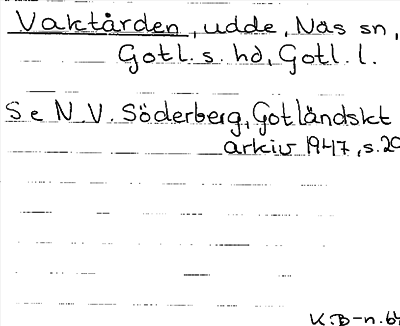 Vaktården, udde, Näs sn,
Gotl. s. hd, Gotl. l.
Se N V. Söderberg, Gotländskt
arkiv 1947, s. 20
K.B-n. 67